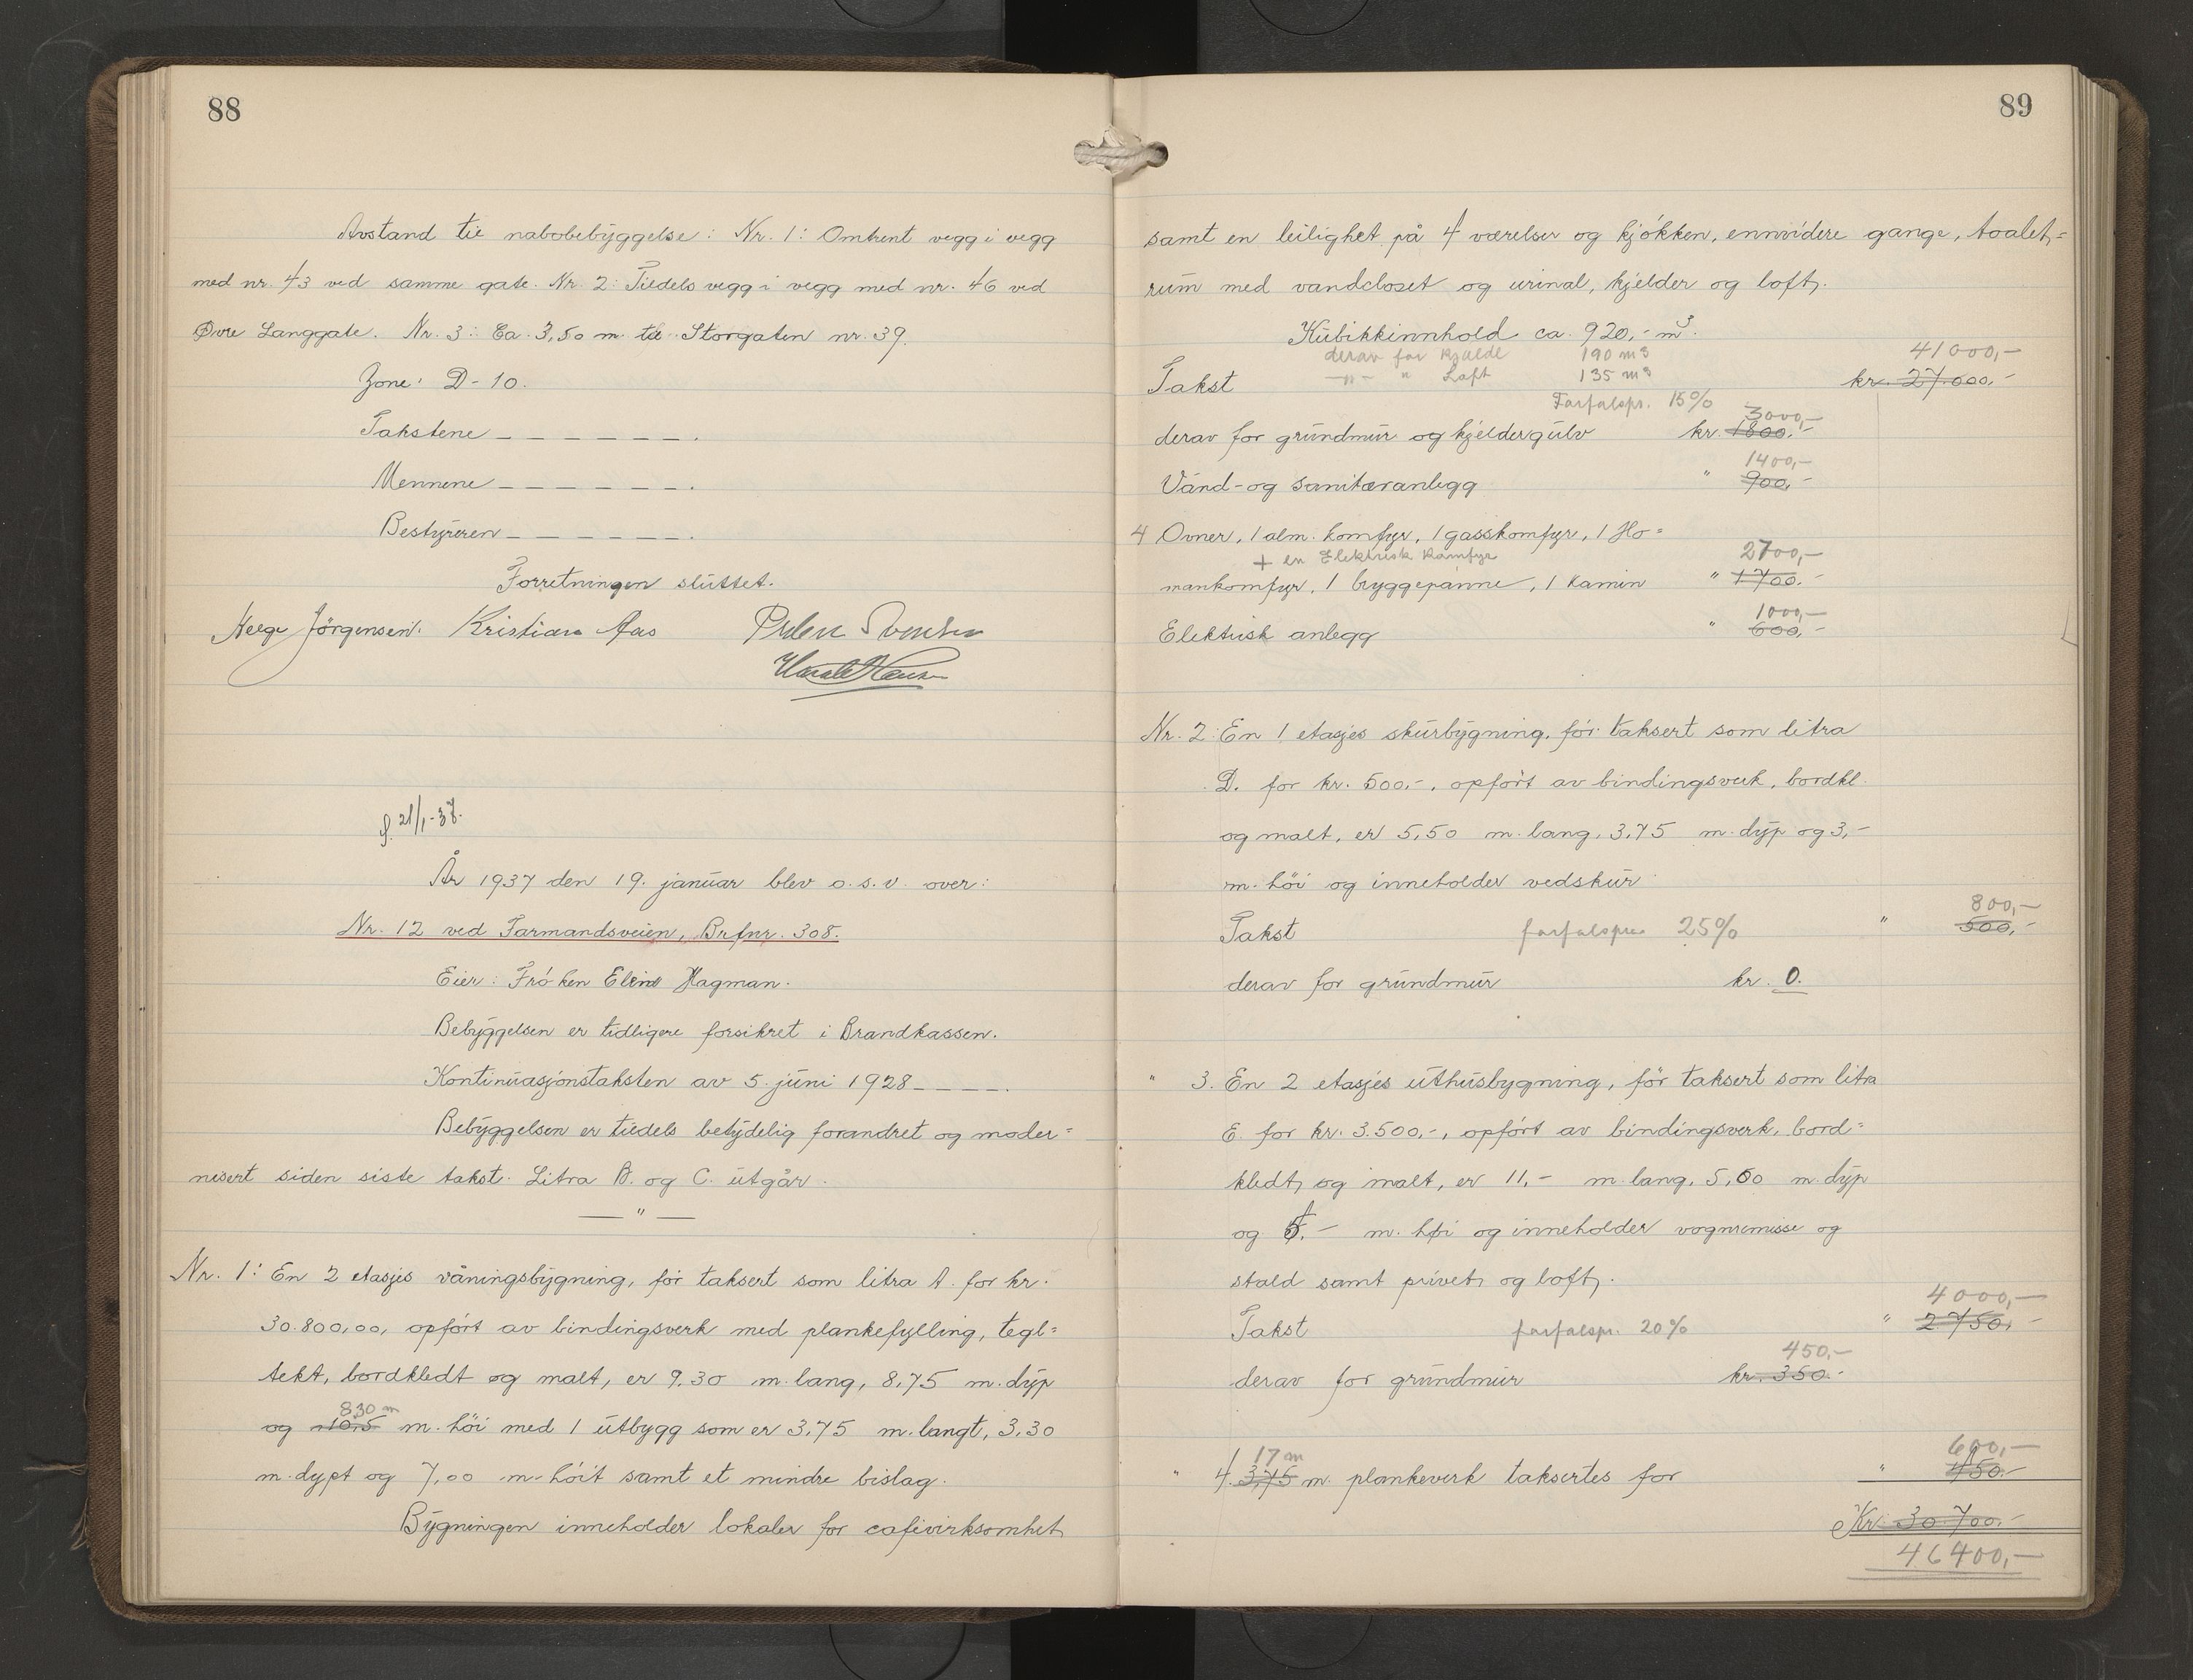 88
Avstand til nabobebyggelse: Nr. 1: Omtrent vegg i vegg
med nr. 43 ved samme gate. Nr. 2: Tildels vegg i vegg med nr. 46 ved
Øvre Langgate. Nr. 3: Ca. 3,50 m. til Storgaten nr. 39.
Zone: D-10.
Takstene _ _ _ _ _ _ .
Mennene _ _ _ _ _ _ .
Bestyreren _ _ _ _ _ _ .
Forretningen sluttet.
Helge Jörgensen. Kristian Aas
Harald Hansen
21/1-37.
År 1937 den 19. januar blev o.s.v. over:
Nr. 12 ved Farmandsveien, Brfnr. 308.
Eier: Fröken Elins Hagman.
Bebyggelsen er tidligere forsikret i Brandkassen.
Kontinuasjonstaksten av 5. juni 1928 _ _ _ _ .
Bebyggelsen er tildels betydelig forandret og moder=
nisert siden siste takst. Litra B. og C. utgår.
— " —
Nr. 1: En 2 etasjes våningsbygning, för taksert som litra A. for kr.
30.800,00, opfört av bindingsverk med plankefylling, tegl=
tekt, bordkledt og malt, er 9,30 m. lang, 8,75 m. dyp
830 m
og 10,5 m. höi med 1 utbygg som er 3,75 m. langt, 3,30
m. dypt og 7,00 m. höit samt et mindre bislag.
Bygningen inneholder lokaler for cafévirksomhet,
89
samt en leilighet på 4 værelser og kjökken, ennvidere gange, toalet=
rum med vandcloset og urinal, kjelder og loft.
Kubikkinnhold ca. 920,- m³.
derav for Kjelde 190 m³
—"— " Loft 135 m³
41000,-
Takst kr. 27.000,-
Forfalspr. 15%
3000,-
derav for grundmur og kjeldergulv kr. 1800,-
1400,-
Vand- og sanitæranlegg " 900,-
4 Ovner, 1 alm. komfyr, 1 gasskomfyr, 1 Ho=
+ en Elektrisk Komfyr 2700,-
mankomfyr, 1 bryggepanne, 1 kamin " 1700,-
1000,-
Elektrisk anlegg " 600,-
Nr. 2: En 1 etasjes skurbygning, för taksert som litra
D. for kr. 500,-, opfört av bindingsverk, bordkl.
og malt, er 5,50 m. lang, 3,75 m. dyp og 3,-
m. höi og inneholder vedskur.
800,-
Takst forfalspr. 25% " 500,-
derav for grundmur kr. 0.
" 3. En 2 etasjes uthusbygning, för taksert som litra
E. for kr. 3.500,-, opfört av bindingsverk, bord=
kledt, og malt, er 11,- m. lang, 5,60 m. dyp
og 5,- m. höi og inneholder vognremisse og
stald samt privet, og loft.
4000,-
Takst forfalspr. 20% " 2.750,-
450,-
derav for grundmur kr. 350.-
17 m 600,-
" 4. 3,75 m. plankeverk taksertes for " 450.-
Kr. 30.700.-
46400,-